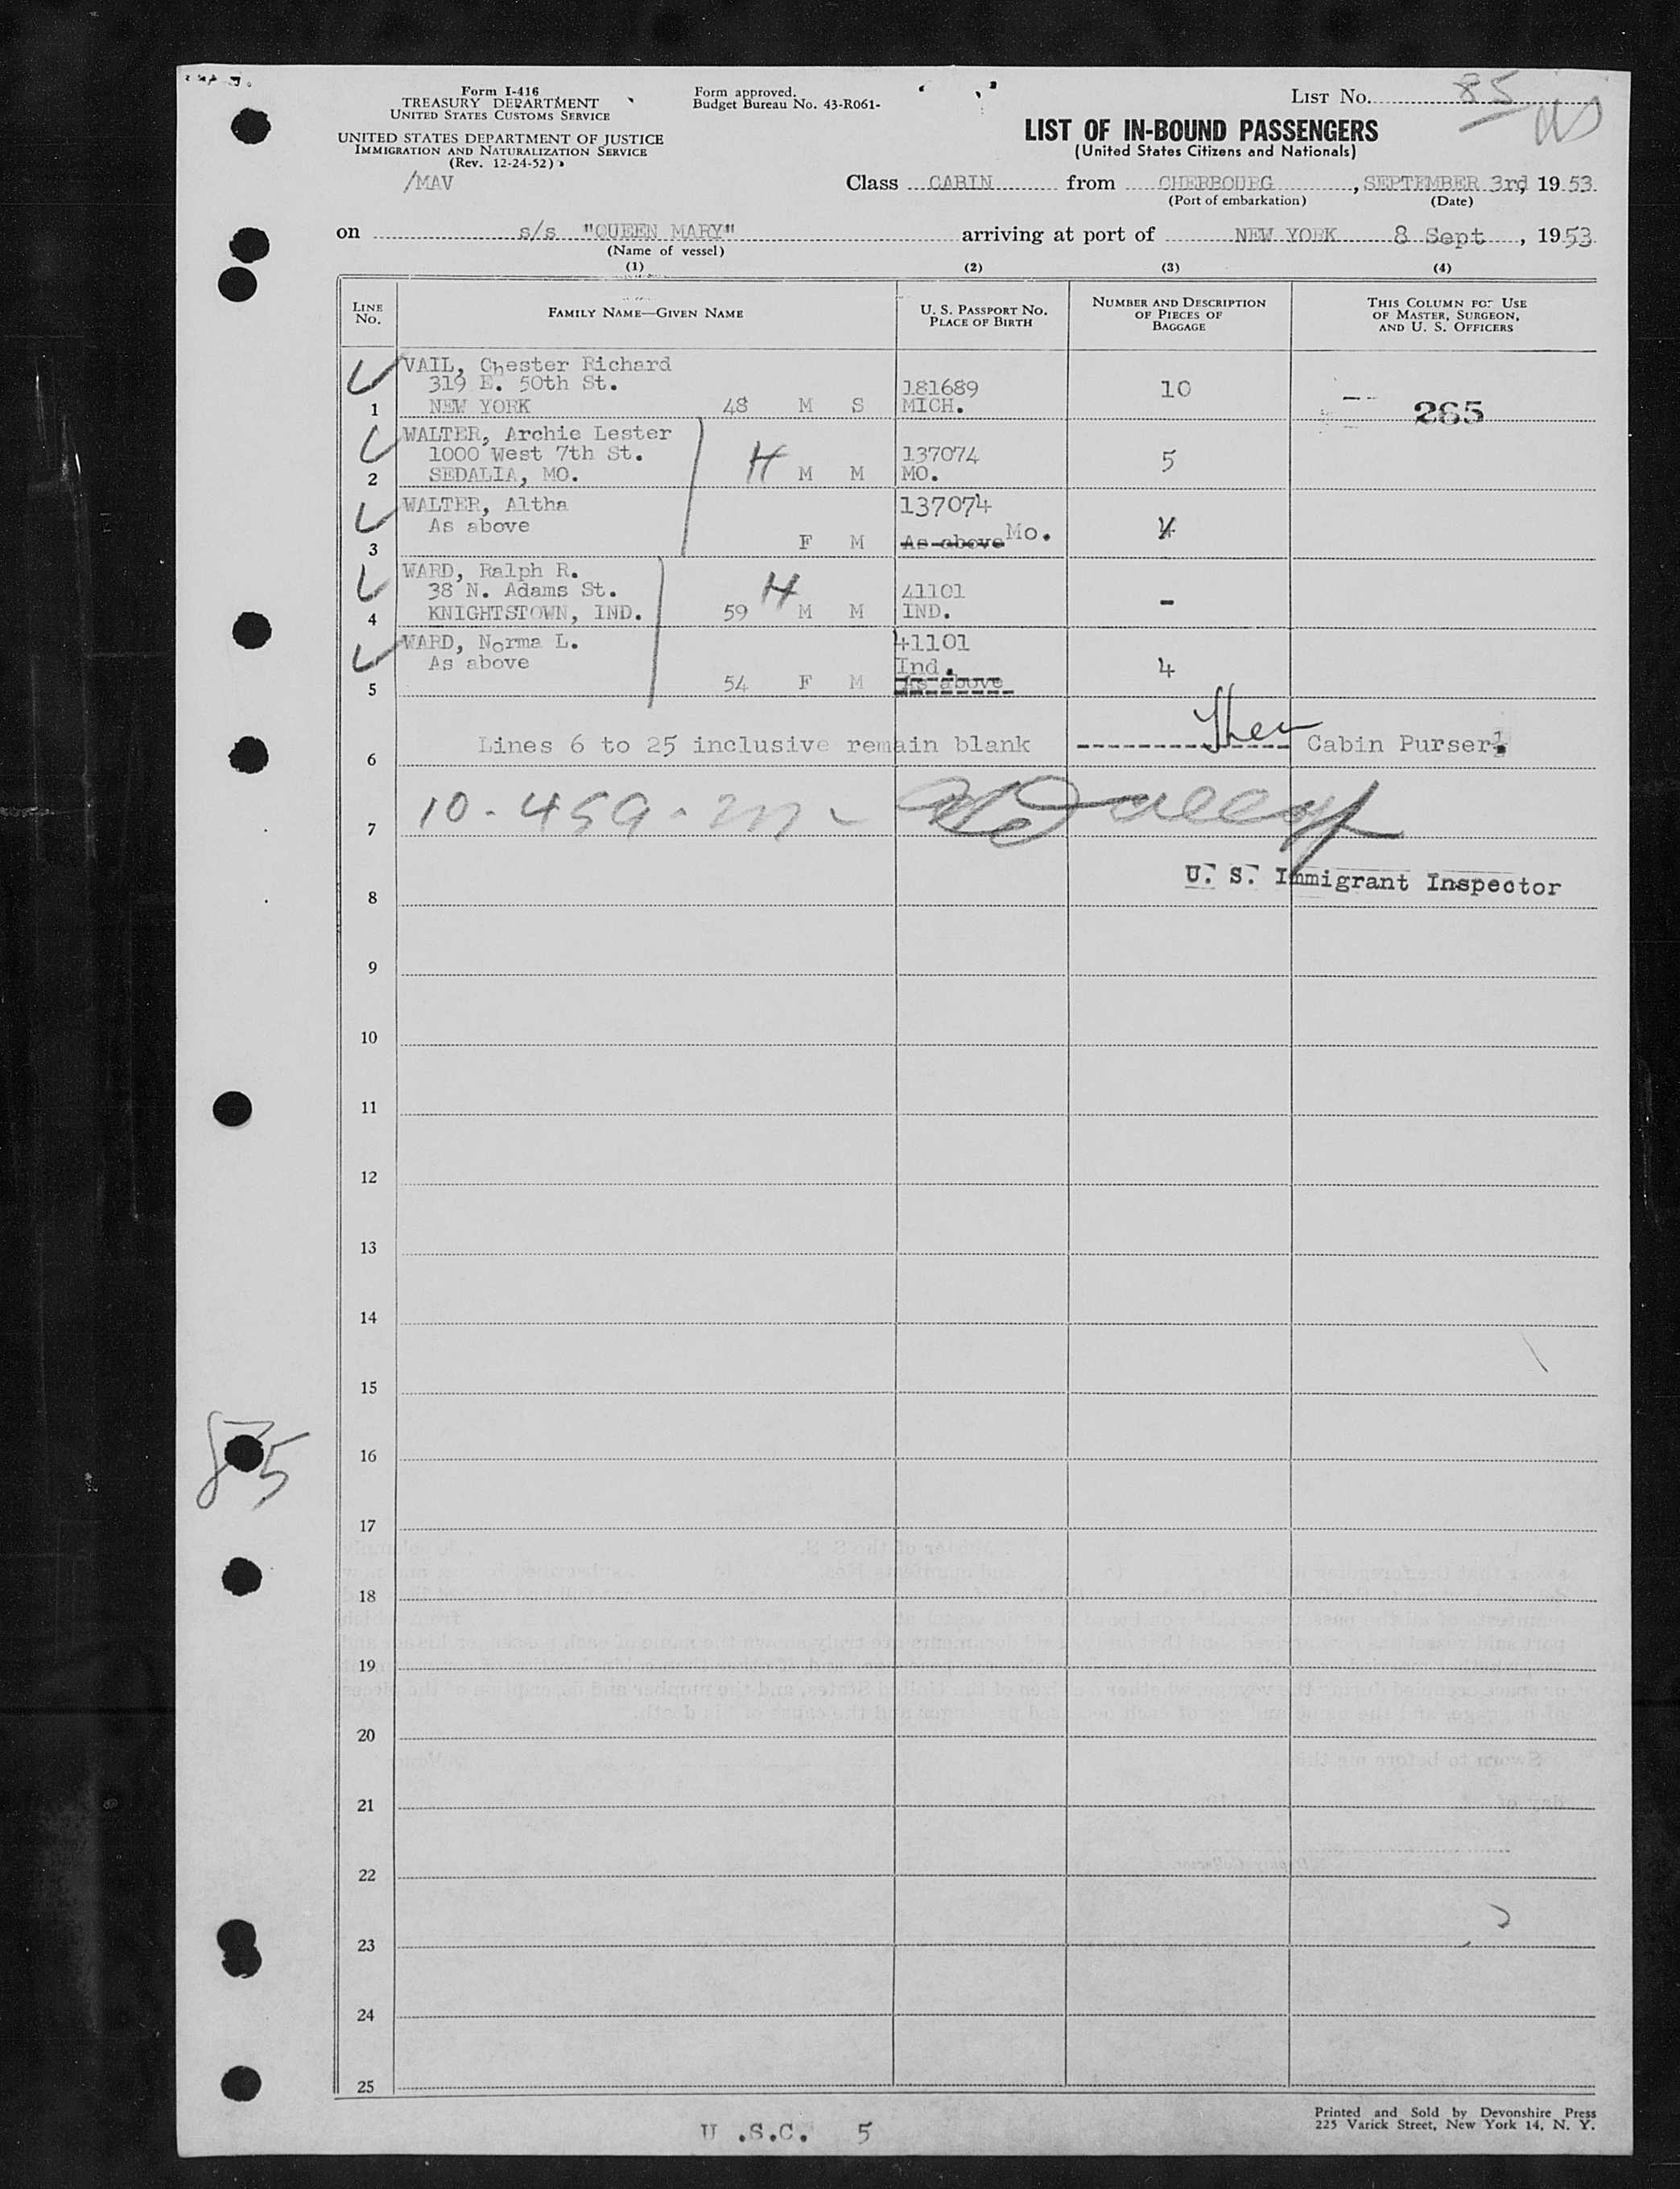 Form I-416
TREASURY DEPARTMENT
UNITED STATES CUSTOMS SERVICE
UNITED STATES DEPARTMENT OF JUSTICE
IMMIGRATION AND NATURALIZATION SERVICE
(Rev. 12-24-52)
/MAV
Form approved.
Budget Bureau No. 43-R061-
LIST No. 85
LIST OF IN-BOUND PASSENGERS
(United States Citizens and Nationals)
Class CABIN from CHERBOURG, SEPTEMBER 3rd, 1953
(Port of embarkation) (Date)
on s/s "QUEEN MARY" arriving at port of NEW YORK 8 Sept, 1953
(Name of vessel)
(1) (2) (3) (4)
LINE No. FAMILY NAME—GIVEN NAME U. S. PASSPORT NO. PLACE OF BIRTH NUMBER AND DESCRIPTION OF PIECES OF BAGGAGE THIS COLUMN FOR USE OF MASTER, SURGEON, AND U. S. OFFICERS
VAIL, Chester Richard
319 E. 50th St. 181689 10
1 NEW YORK 48 M S MICH. -- 265
WALTER, Archie Lester
1000 West 7th St. 137074 5
2 SEDALIA, MO. H M M MO.
WALTER, Altha 137074
As above As above Mo. 4
3 F M
WARD, Ralph R.
38 N. Adams St. H 41101
4 KNIGHTSTOWN, IND. 59 M M IND. -
WARD, Norma L. 41101
As above Ind. 4
5 54 F M As above
6 Lines 6 to 25 inclusive remain blank Cabin Purser
7 10-459-m-
U. S. Immigrant Inspector
8
9
10
11
12
13
14
15
85
16
17
18
19
20
21
22
23
24
25
U.S.C. 5
Printed and Sold by Devonshire Press
225 Varick Street, New York 14, N. Y.